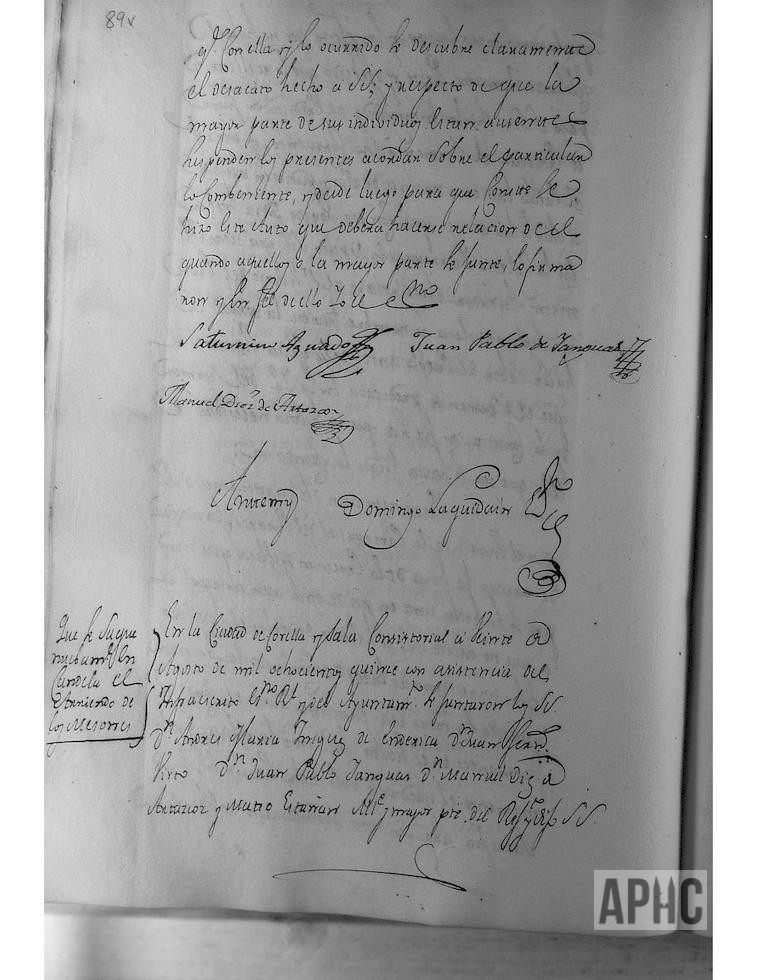 89v
qᵉ. Con ella y lo ocurrido se descubre claramente
el desacato hecho a SS; y respecto de que la
mayor parte de sus individuos estan ausentes
suspenden los presentes acordar sobre el particular
lo combeniente, y desde luego para que conste se
hizo este Auto que debera hacerse relacion de el
quando aquellos o la mayor parte se junte, lo firma
ron y en fee de ello Yo el esno
Saturnino Aguado
Juan Pablo de Yanguas
Manuel Diez de Artazcoz
Antemi Domingo Laquidain
Que se saque
nuebamte. en
Candela el
Arriendo de
los Mesones
En la Ciudad de Corella y Sala Consistorial a Veinte de
Agosto de mil ochocientos quince con asistencia del
Infraescrito Esno Rl. y del Ayuntamto. se juntaron los SS.
Dn. Andres Maria Iñiguez de Dn. Juan
Dn. Juan Pablo Yanguas Dn. Manuel Diez de
Artazcoz y Mateo mayor pte. del SS.
APHC